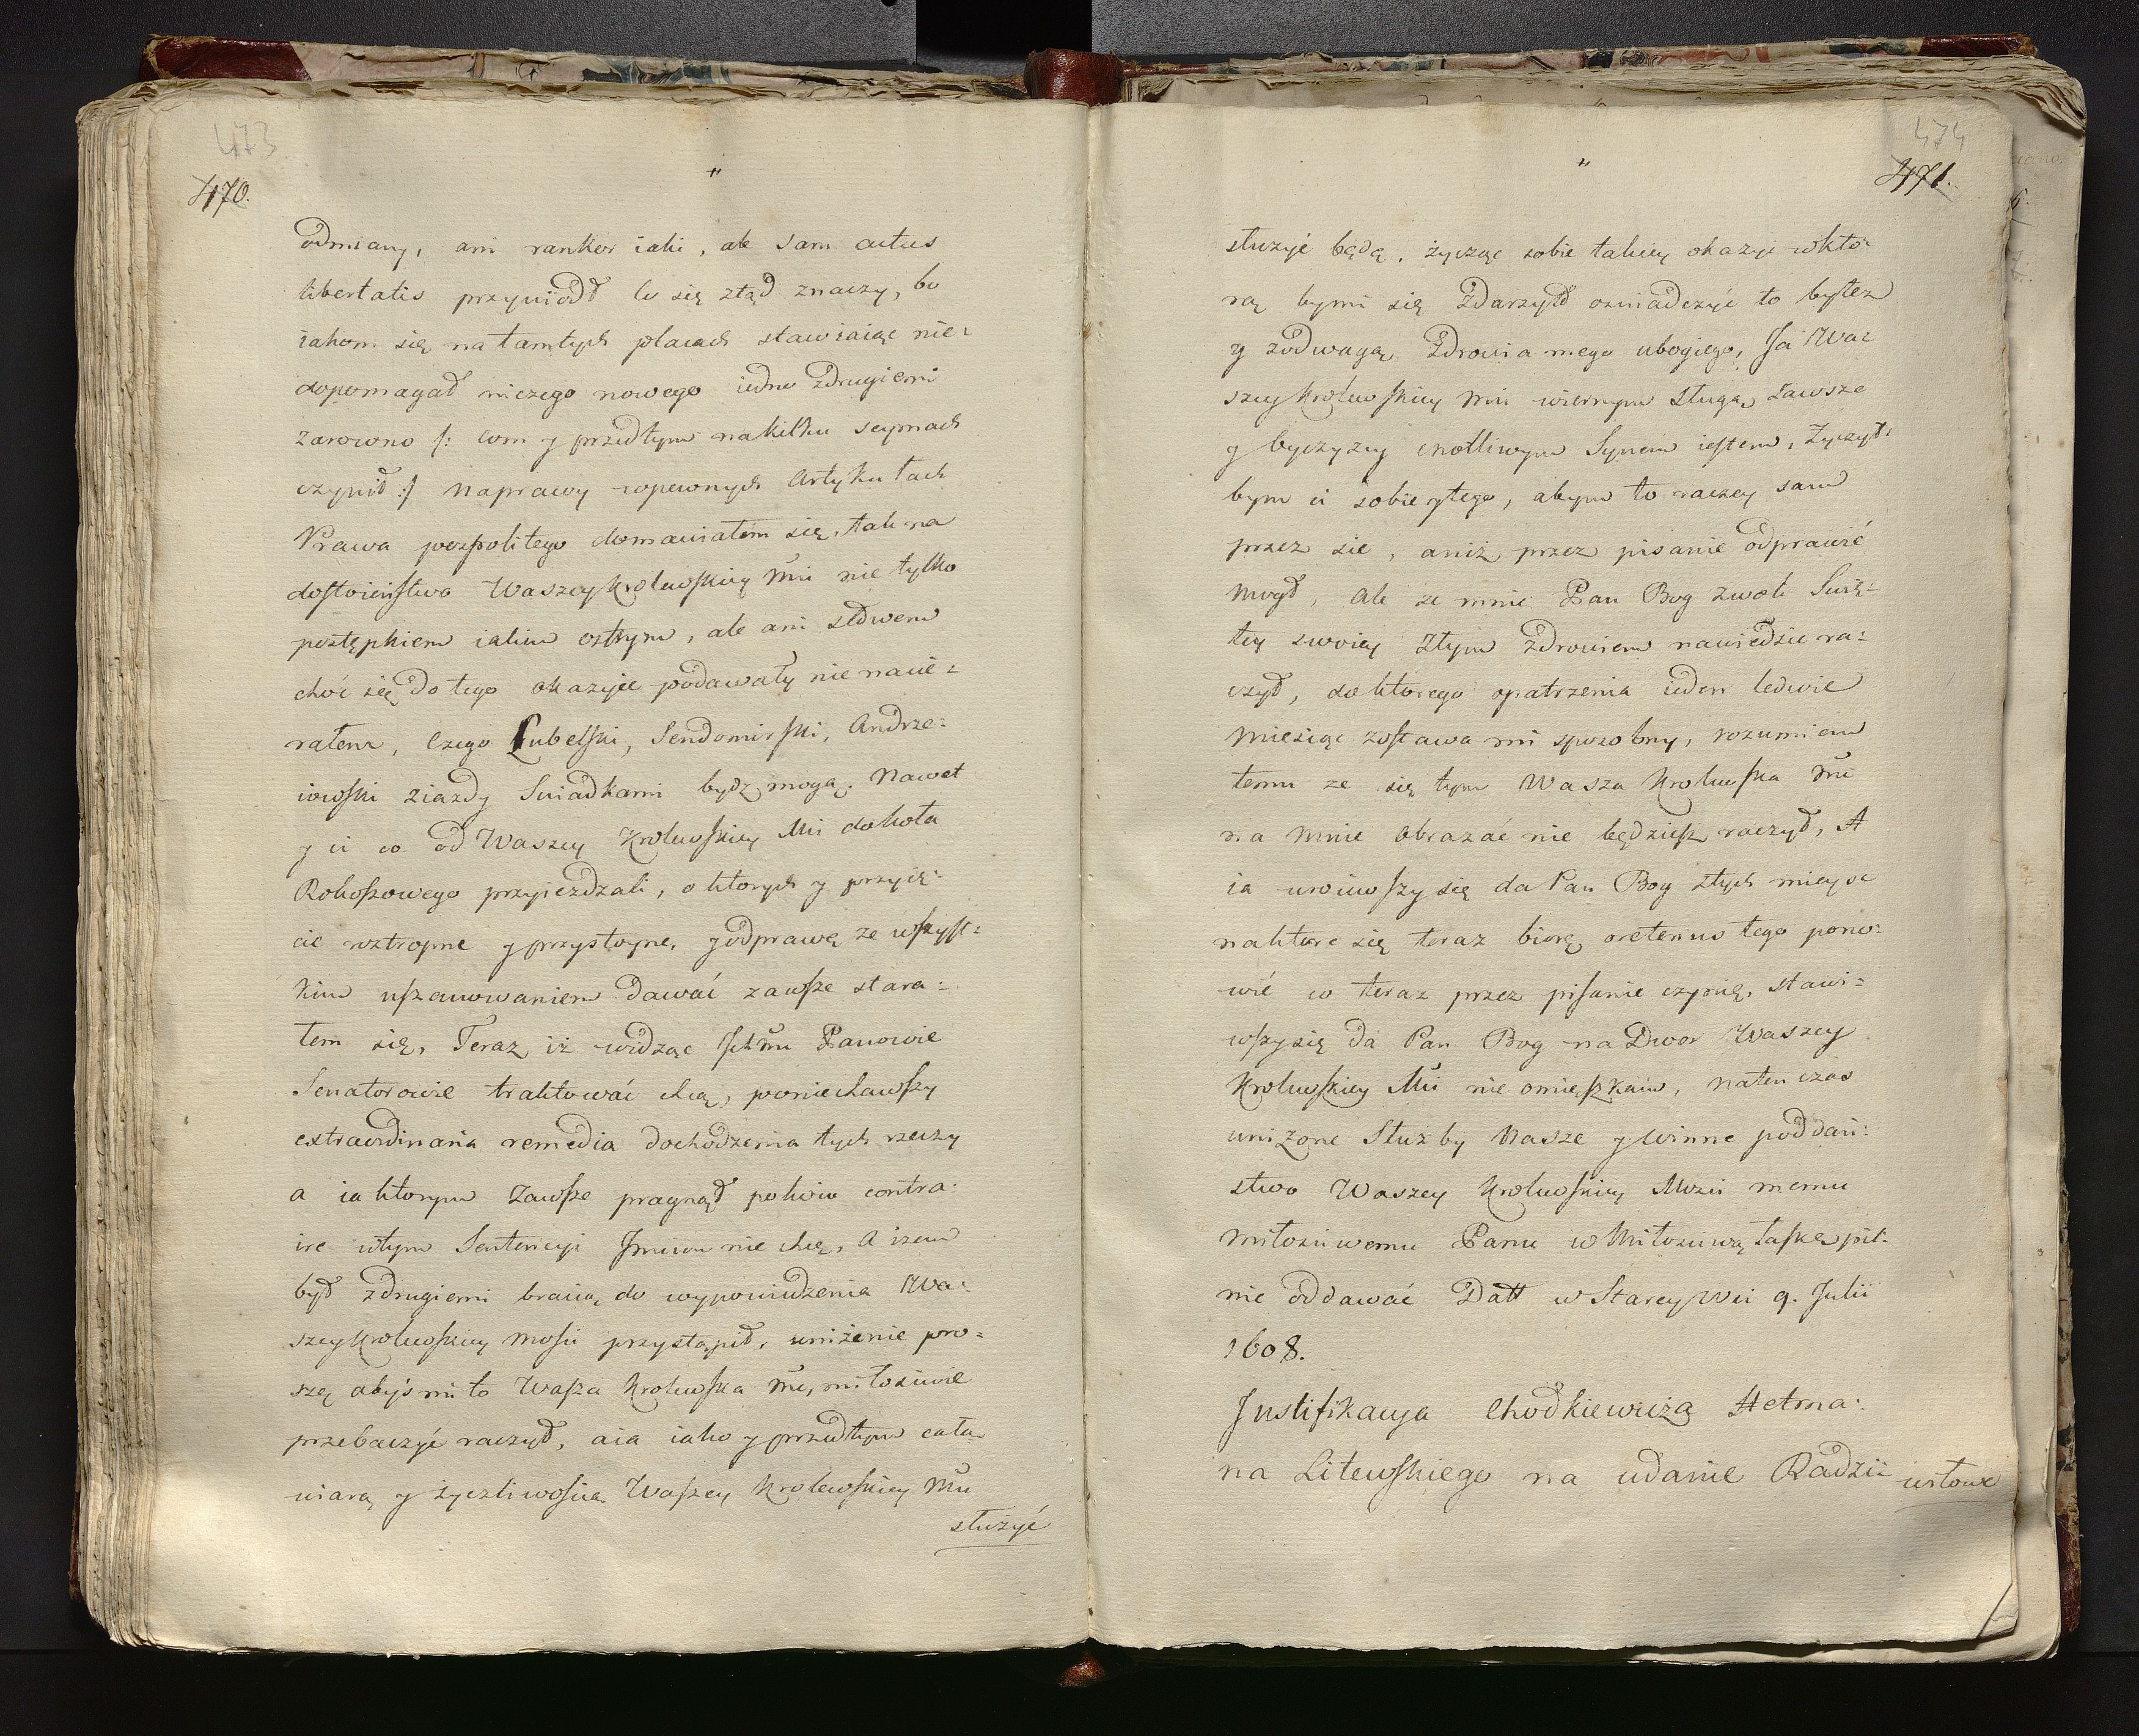 473
470.
odmiany, ani rankor iaki, ale sam actus
libertatis przywiodł co się ztąd znaczy, bo
iakom się na tamtych placach stawiaiąc nie=
dopomagał niczego nowego iedno zdrugiemi
zarowno /: com y przedtym nakilku seymach
czynił :/ naprawy wpewnych Artykułach
Prawa pospolitego domawiałem się, tak na
dostoieństwo Waszey Krolewskiey Mci nie tylko
postępkiem iakim ostrym, ale ani słowem
choć się do tego okazyie podawały nie nacie=
rałem, czego Lubelski, Sendomirski, Andrze=
iowski ziazdy Swiadkami bydz mogą. Nawet
y ci co od Waszey Krolewskiey Mci do koła
Rokoszowego przyiezdzali, o ktorych y przyię=
cie roztropne y przystoyne, y odprawę ze wszyst=
kim uszanowaniem dawać zawsze stara=
łem się. Teraz iż widząc Ichmci Panowie
Senatorowie traktować chcą, poniechawszy
extraordinaria remedia dochodzenia tych rzeczy
a ia ktorym zawsze pragnął pokoiu contra=
ire wtym Sentencyi Imciom nie chcę, A izem
był zdrugiemi bracią do wypowiedzenia Wa=
szey Krolewskiey Mosci przystąpił, uniżenie pro=
szę abyś mi to Wasza Krolewska Mć, miłościwie
przebaczyć raczył, a ia iako y przedtym całą
wiarą y życzliwością Waszey Krolewskiey Mci
służyć
474
471.
służyć będę, życząc sobie takiey okazyi wkto=
rą bymi się zdarzyło oświadczyć to byłem
y zodwagą Zdrowia mego ubogiego, Ja Wa=
szey Krolewskiey Mci wiernym sługą zawsze
y oyczyzny cnotliwym Synem iestem, Życzył=
bym ci sobie y tego, abym to raczey sam
przez się, aniż przez pisanie odprawić
mogł, ale ze mnie Pan Bog zwoli Swię=
tey swoiey złym zdrowiem nawiedzić ra=
czył, do ktorego opatrzenia ieden ledwie
miesiąc zostawa mi sposobny, rozumiem
temu ze się tym Wasza Krolewska Mć
na mnie obrazać nie będziesz raczył, A
ia wrociwszy się da Pan Bog z tych mieysc
naktore się teraz biorę oretenus tego pono=
wić co teraz przez pisanie czynię, stawi=
wszy się da Pan Bog na Dwor Waszey
Krolewskiey Mci nie omieszkam, naten czas
unizone Służby Nasze y winne poddań=
stwo Waszey Krolewskiey Mści memu
miłościwemu Panu w Miłościwą łaskę pil=
nie oddawać Datt w Starey Wsi 9. Julii
1608.
Justifikacya Chodkiewicza Hetma=
na Litewskiego na udanie Radzi=
wiłowe